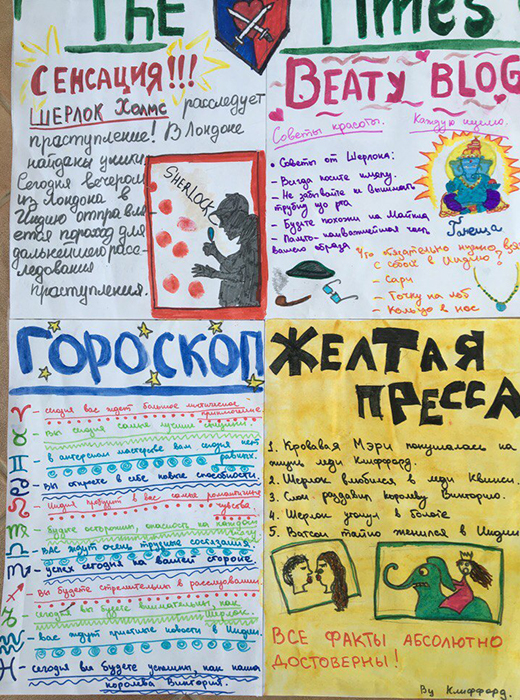 The Times
СЕНСАЦИЯ!!!
ШЕРЛОК Холмс расследует
преступление! В Лондоне
найдены улики
Сегодня вечером
из Лондона в
Индию отправля-
ется пароход для
дальнейшего расс-
ледования
преступления.
SHERLOCK
BEATY BLOG
Советы красоты. Каждую неделю.
• Советы от Шерлока:
- Всегда носите шляпу.
- Не забывайте и вынимать
трубку до рта
- Будьте похожи на Майкла
- Пальто - наиважнейшая часть
вашего образа
Ганеша
Что обязательно нужно взять
с собой в Индию?
- Сари
- Точку на лоб
- Кольцо в нос
ГОРОСКОП
- сегодня вас ждет большое мистическое
приключение.
- Вы сегодня самые лучшие сыщики!
- в актерском мастерстве вам сегодня нет
равных.
- Вы откроете в себе новые способности
- Индия пробудит в вас самые романтичные
чувства.
- Будьте осторожны, опасность на каждом
- вас ждут очень трудные состязания
- успех сегодня на вашей стороне
- Вы будете стремительны в расследовании.
- Сегодня вы будете внимательны, как
Шерлок.
- вас ждут приятные новости в Индии.
- сегодня вы будете успешны, как наша
королева Виктория.
ЖЕЛТАЯ
ПРЕССА
1. Кровавая Мэри покушалась на
жизнь леди Клиффорд.
2. Шерлок влюбился в леди Квинси.
3. Слон раздавил королеву Викторию.
4. Шерлок утонул в болоте
5. Ватсон тайно женился в Индии
ВСЕ ФАКТЫ АБСОЛЮТНО
ДОСТОВЕРНЫ!
By Клиффорд.